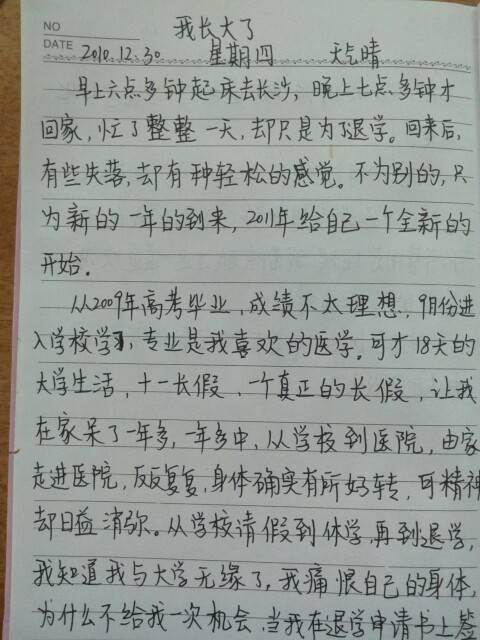 我长大了
NO
DATE 2010.12.30 星期四 天气晴
早上六点多钟起床去长沙，晚上七点多钟才
回家，忙了整整一天，却只是为了退学。回来后，
有些失落，却有种轻松的感觉。不为别的，只
为新的一年的到来，2011年给自己一个全新的
开始。
从2009年高考毕业，成绩不太理想，9月份进
入学校学习，专业是我喜欢的医学。可才18天的
大学生活，十一长假，一个真正的长假，让我
在家呆了一年多，一年多中，从学校到医院，由家
走进医院，反反复复，身体确实有所好转，可精神
却日益消弥。从学校请假到休学，再到退学，
我知道我与大学无缘了，我痛恨自己的身体，
为什么不给我一次机会，当我在退学申请书上签